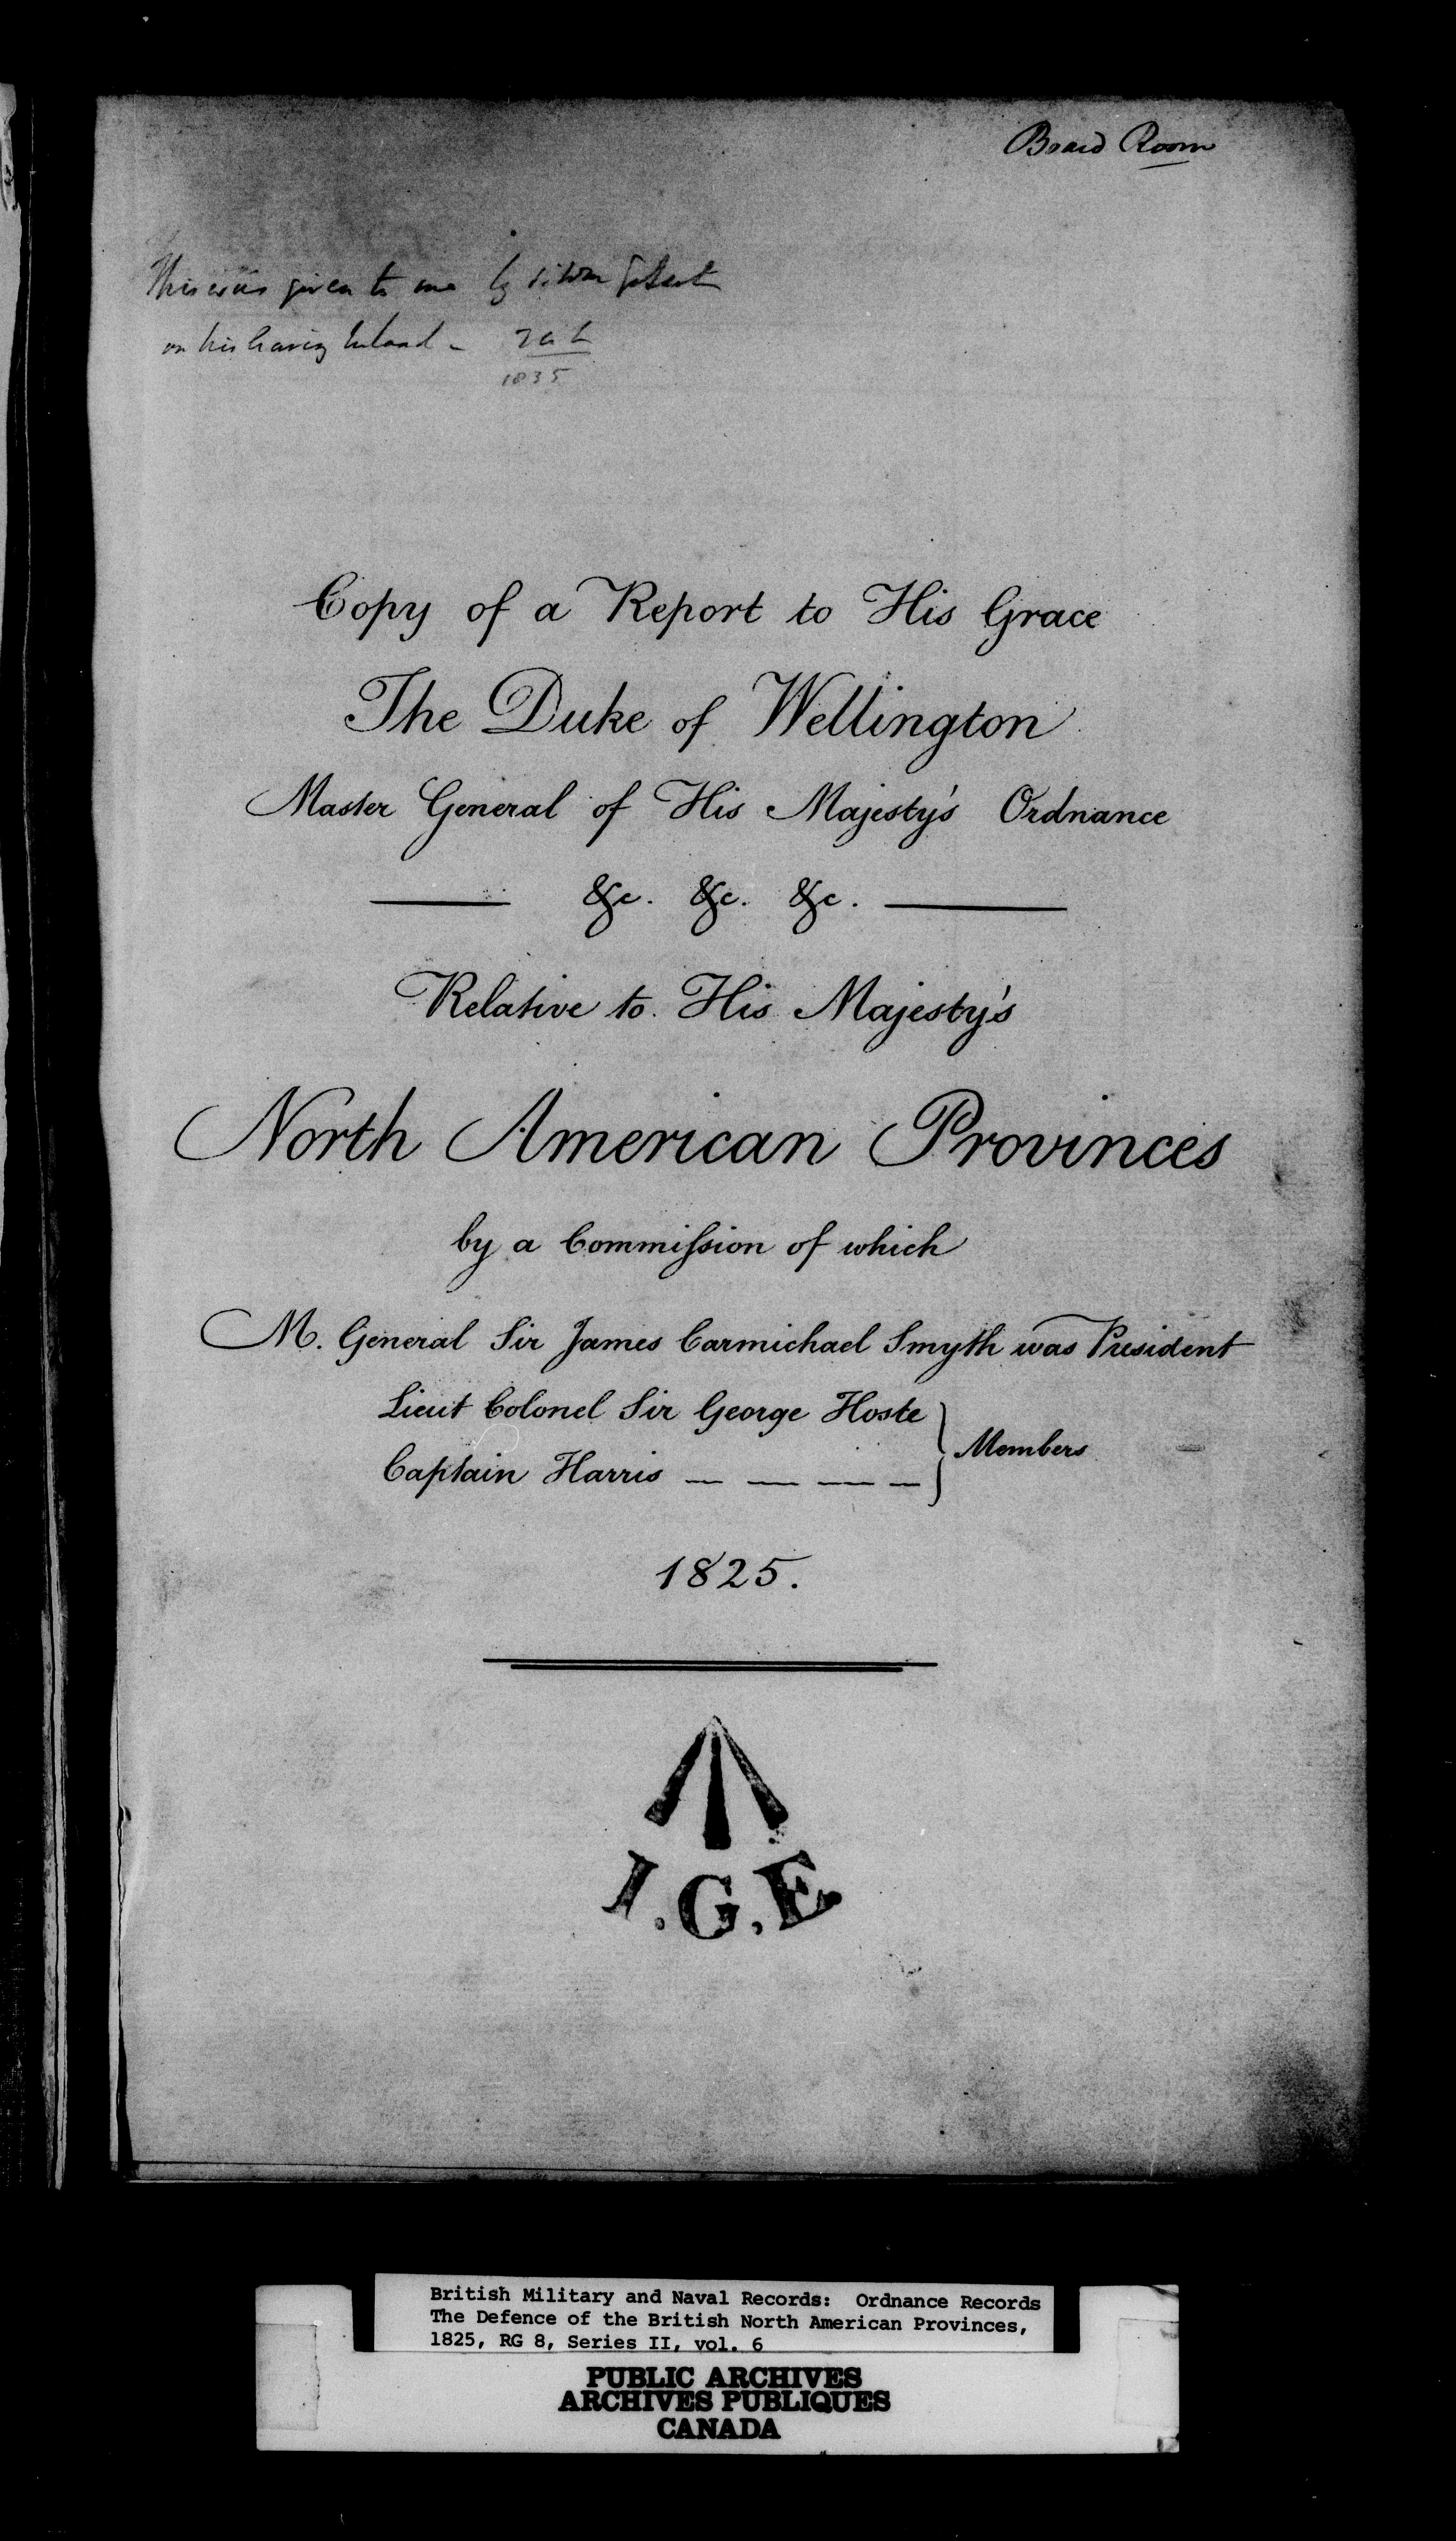 Board Room
This was given to me by
on his leaving
1835
Copy of a Report to His Grace
The Duke of Wellington
Master General of His Majesty's Ordnance
&c. &c. &c.
Relative to His Majesty's
North American Provinces
by a Commiſsion of which
M. General Sir James Carmichael Smyth was President
Lieut Colonel Sir George Hoste
Captain Harris — — — —
Members
1825.
I.G.E
British Military and Naval Records: Ordnance Records
The Defence of the British North American Provinces,
1825, RG 8, Series II, vol. 6
PUBLIC ARCHIVES
ARCHIVES PUBLIQUES
CANADA